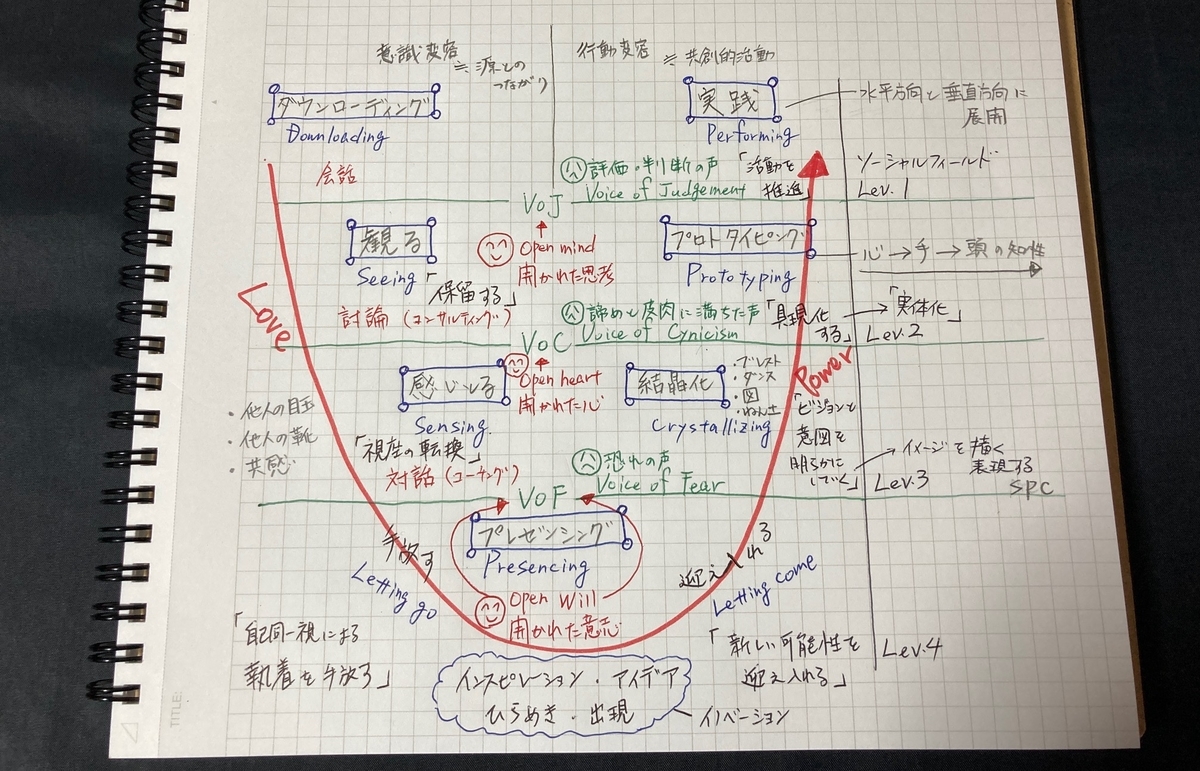 意識変容
≒ 源との
つながり
行動変容 ≒ 共創的活動
ダウンローディング
Downloading
実践
Performing
水平方向と垂直方向に
展開
会話
評価・判断の声
Voice of Judgement
「活動を
推進」
ソーシャルフィールド
Lev.1
VoJ
観る
Seeing
「保留する」
Open mind
開かれた思考
プロトタイピング
Prototyping
心→手→頭の知性
討論(コンサルティング)
諦めと皮肉に満ちた声
Voice of Cynicism
「具現化
する」
→「実体化」
Lev.2
Love
VoC
感じとる
Sensing
Open heart
開かれた心
結晶化
Crystallizing
・ブレスト
・ダンス
・図
・ねんど
Power
・他人の目玉
・他人の靴
・共感
「視座の転換」
対話(コーチング)
恐れの声
Voice of Fear
「ビジョンと
意図を
明らかに
していく」
→イメージを描く
表現する
SPC
Lev.3
VoF
プレゼンシング
Presencing
手放す
Letting go
Open Will
開かれた意志
迎え入れる
Letting come
「自己同一視による
執着を手放す」
「新しい可能性を
迎え入れる」
Lev.4
インスピレーション・アイデア
ひらめき・出現
イノベーション
TITLE: